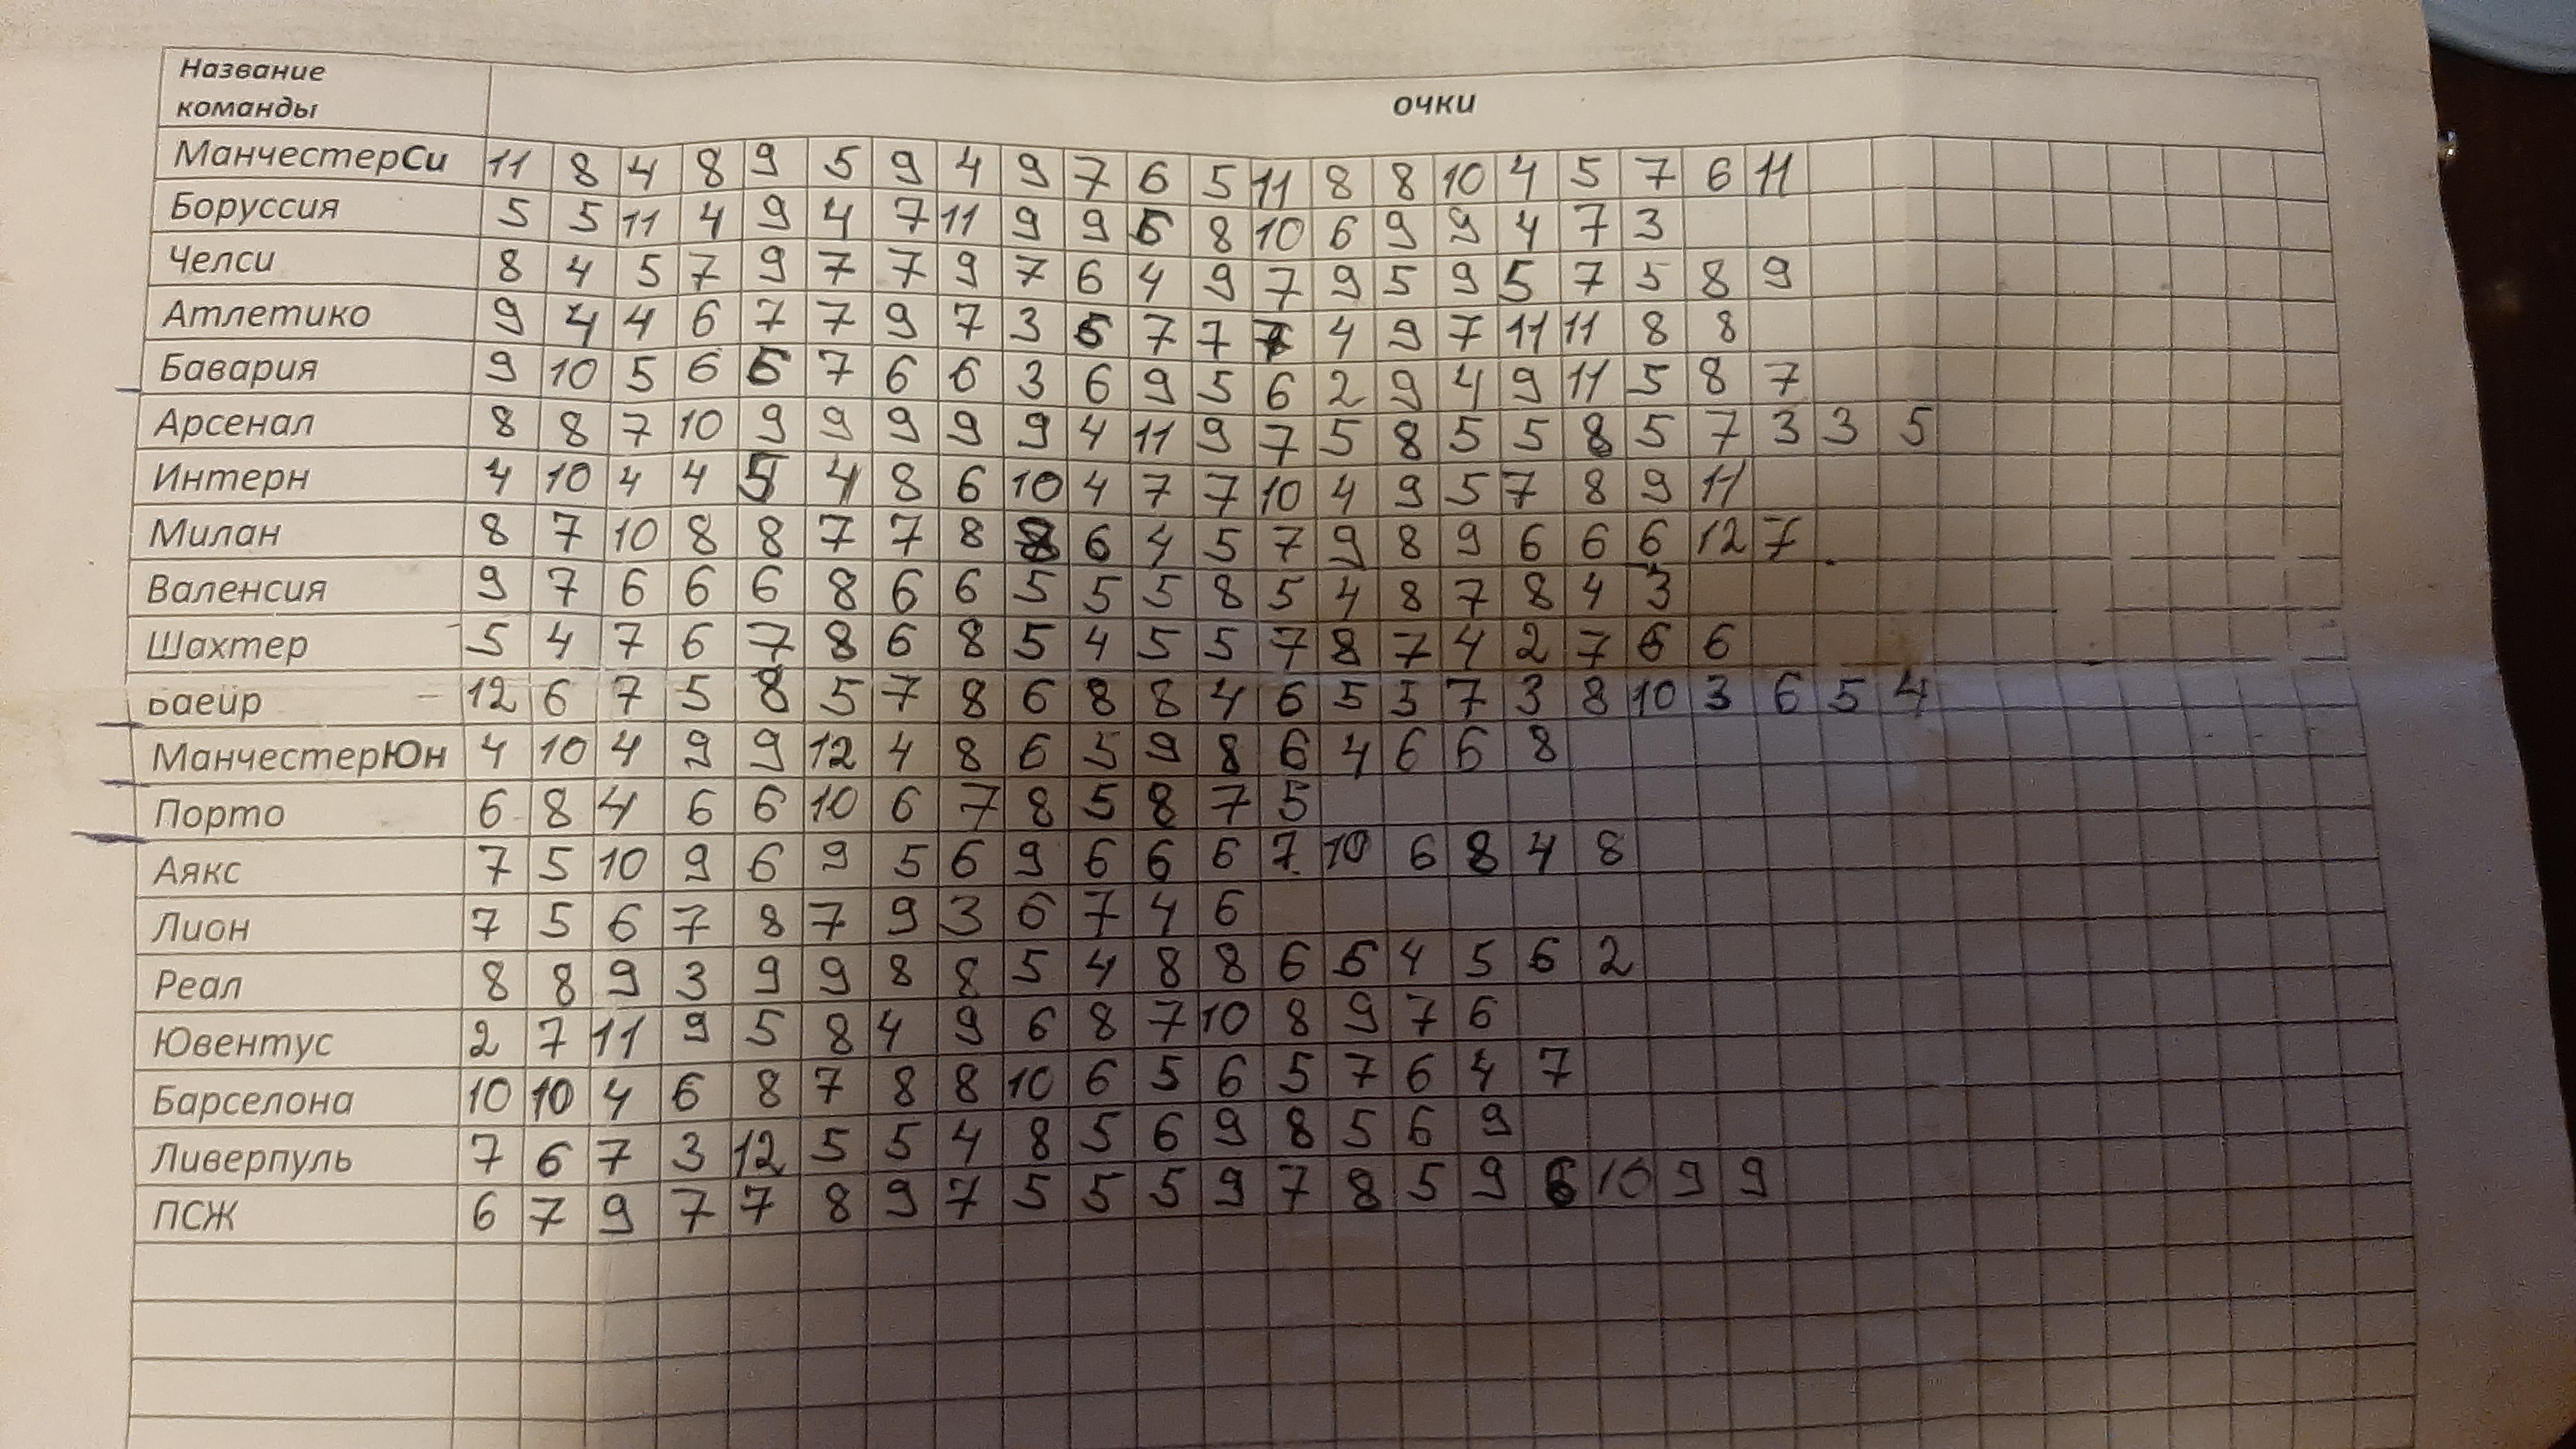 Название
команды
очки
МанчестерСи 11 8 4 8 9 5 9 4 9 7 6 5 11 8 8 10 4 5 7 6 11
Боруссия 5 5 11 4 9 4 7 11 9 9 6 8 10 6 9 9 4 7 3
Челси 8 4 5 7 9 7 7 9 7 6 4 9 7 9 5 9 5 7 5 8 9
Атлетико 9 4 4 6 7 7 9 7 3 6 7 7 7 4 9 7 11 11 8 8
Бавария 9 10 5 6 6 7 6 6 3 6 9 5 6 2 9 4 9 11 5 8 7
Арсенал 8 8 7 10 9 9 9 9 9 4 11 9 7 5 8 5 5 8 5 7 3 3 5
Интерн 4 10 4 4 5 4 8 6 10 4 7 7 10 4 9 5 7 8 9 11
Милан 8 7 10 8 8 7 7 8 8 6 4 5 7 9 8 9 6 6 6 12 7
Валенсия 9 7 6 6 6 8 6 6 5 5 5 8 5 4 8 7 8 4 3
Шахтер 5 4 7 6 7 8 6 8 5 4 5 5 7 8 7 4 2 7 6 6
Баейр 12 6 7 5 8 5 7 8 6 8 8 4 6 5 5 7 3 8 10 3 6 5 4
МанчестерЮн 4 10 4 9 9 12 4 8 6 5 9 8 6 4 6 6 8
Порто 6 8 4 6 6 10 6 7 8 5 8 7 5
Аякс 7 5 10 9 6 9 5 6 9 6 6 6 7 10 6 8 4 8
Лион 7 5 6 7 8 7 9 3 6 7 4 6
Реал 8 8 9 3 9 9 8 8 5 4 8 8 6 6 4 5 6 2
Ювентус 2 7 11 9 5 8 4 9 6 8 7 10 8 9 7 6
Барселона 10 10 4 6 8 7 8 8 10 6 5 6 5 7 6 4 7
Ливерпуль 7 6 7 3 12 5 5 4 8 5 6 9 8 5 6 9
ПСЖ 6 7 9 7 7 8 9 7 5 5 5 9 7 8 5 9 6 10 9 9